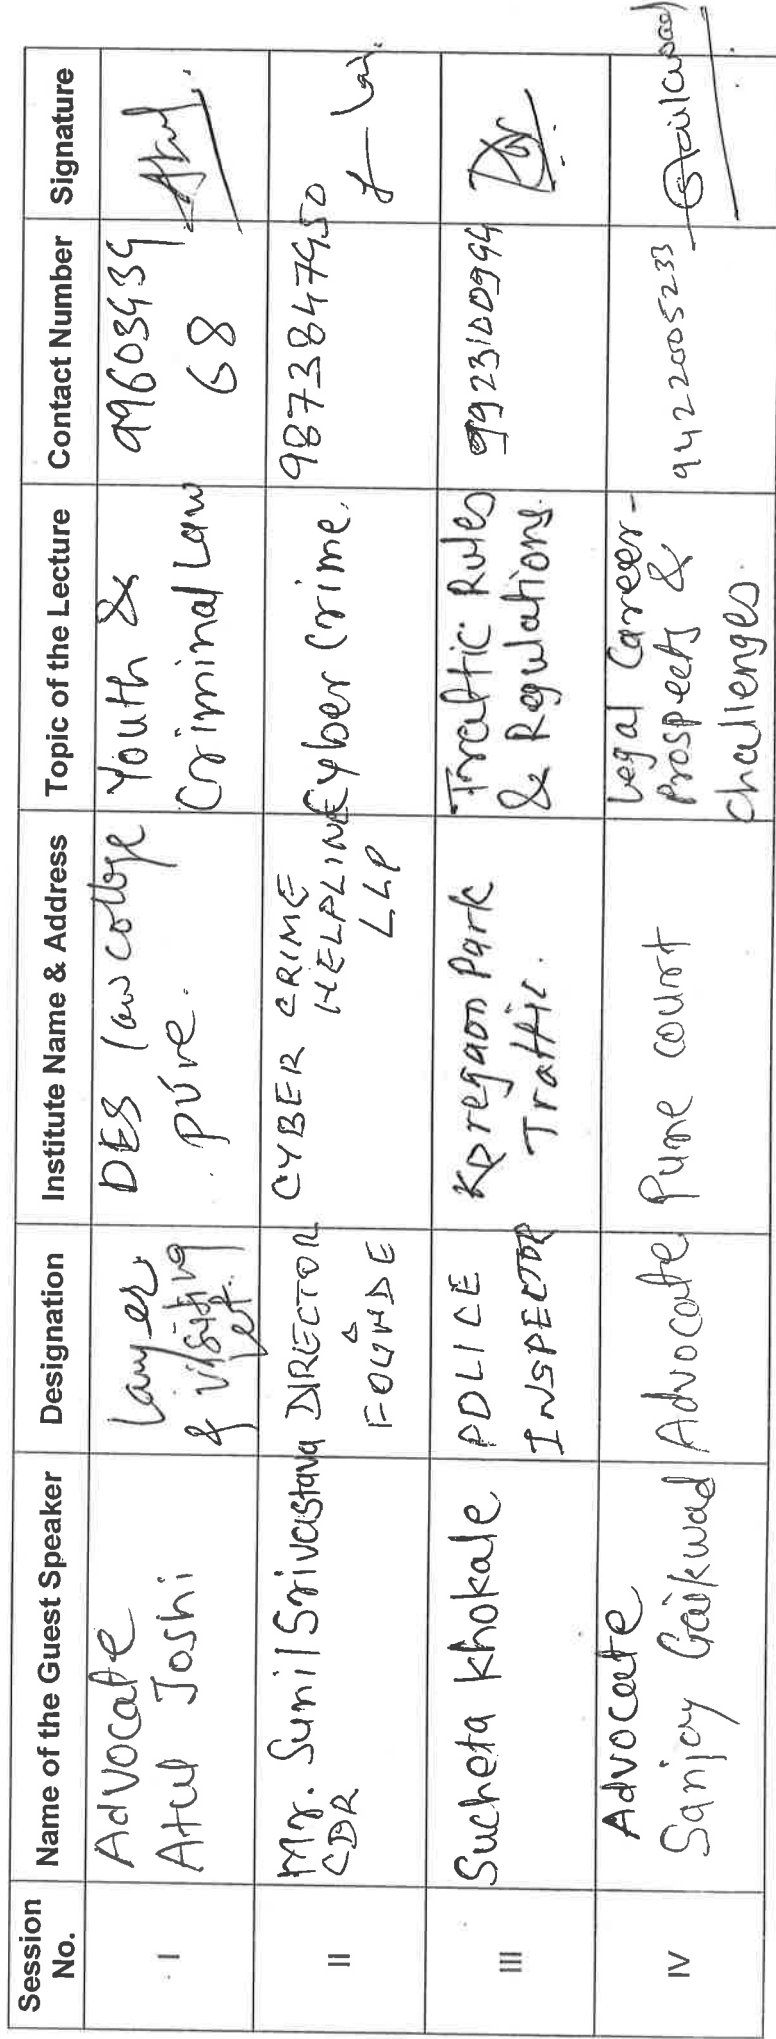 Session No.
Name of the Guest Speaker
Designation
Institute Name & Address
Topic of the Lecture
Contact Number
Signature
I
Advocate
Atul Joshi
Lawyer
& visiting
DES law college
pune.
Youth &
Criminal Law
99603939
68
II
Mr. Sunil Srivastava
CDR
DIRECTOR
FOUNDE
CYBER CRIME
HELPLINE
LLP
Cyber Crime.
9873847950
III
Sucheta Khokale
POLICE
INSPECTOR
Koregaon Park
Traffic.
Traffic Rules
& Regulations.
9923100994
IV
Advocate
Sanjay Gaikwad
Advocate
Pune court
Legal Career-
Prospects &
challenges.
9422005233
Gaikwad